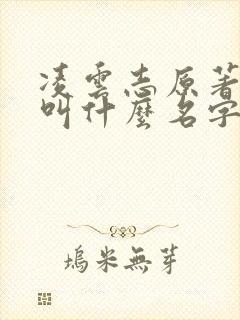 凌雲志原著
叫什麼名字
塢米無芽